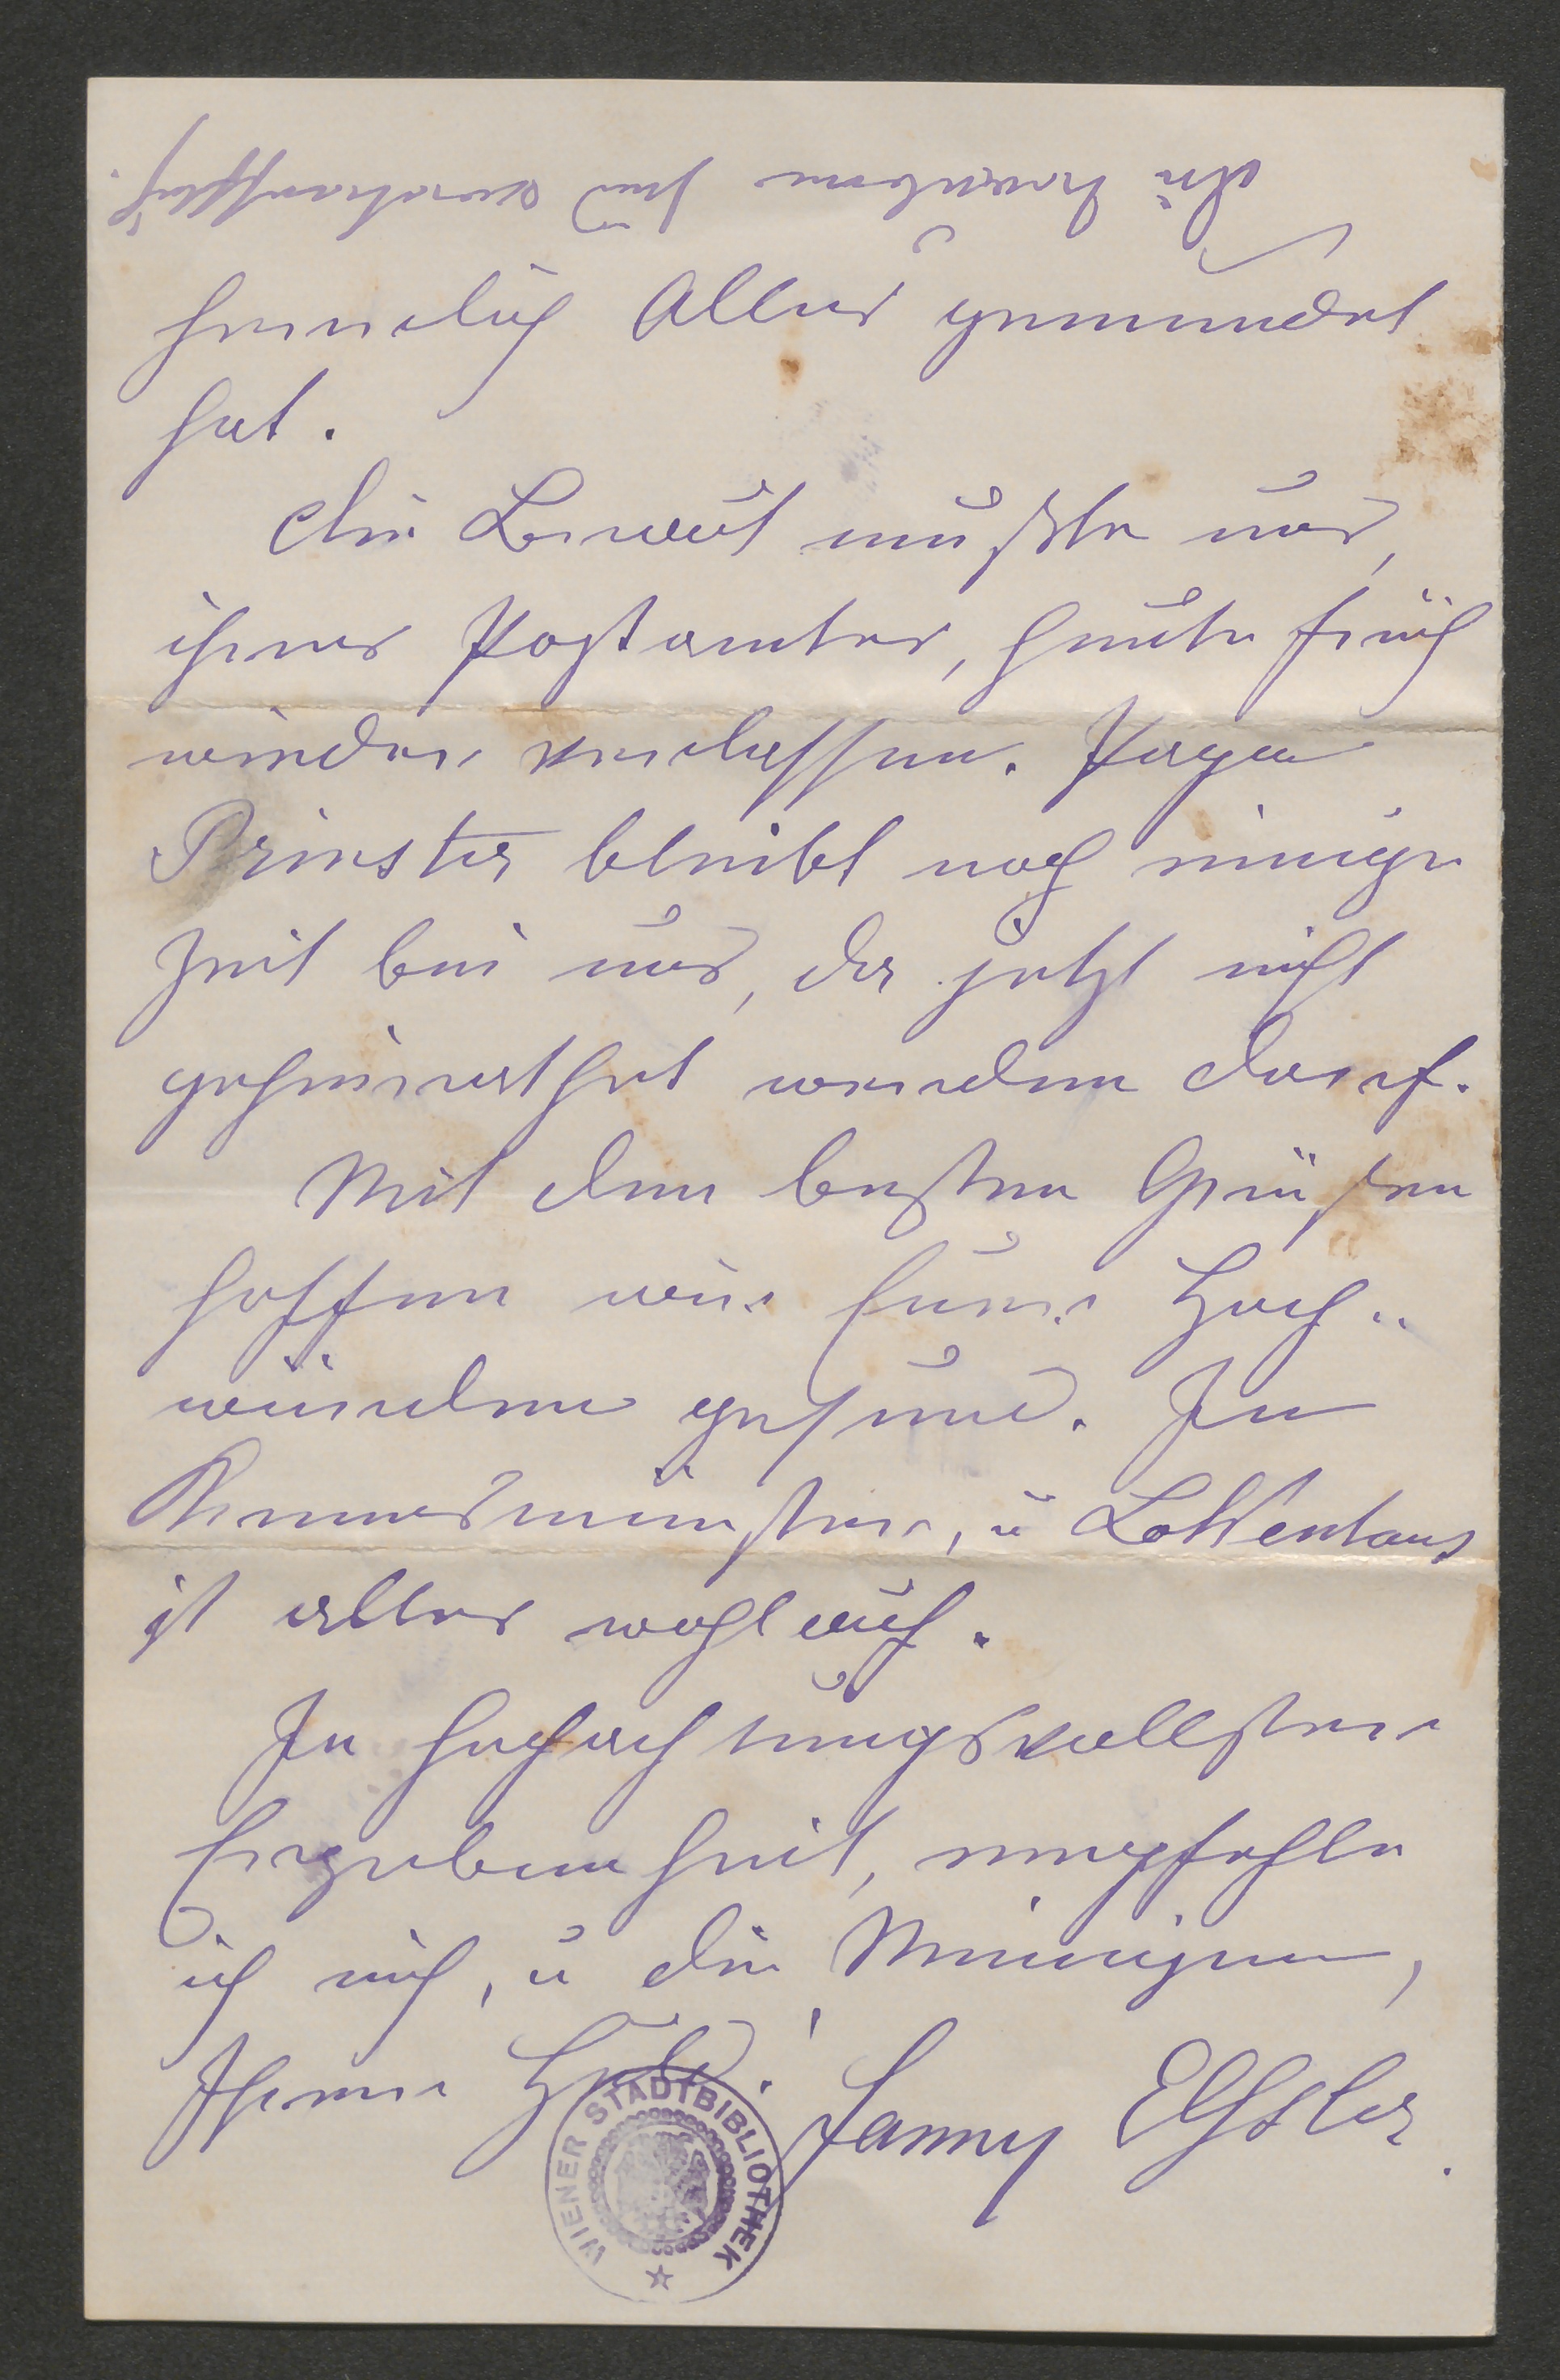 die Trauben sind vortrefflich.
herrlich Alles gemundet
hat.
Die Braut mußte uns,
ihres Postamtes, heute früh
wieder verlassen. Papa
Prinster bleibt noch einige
Zeit bei uns, da jetzt nicht
geheirathet werden darf.
Mit den besten Grüßen
hoffen wir Euer Hoch-
würden gesund. In
Kremsmünster, u
ist alles wohlauf.
In hochachtungsvollster
Ergebenheit, empfehle
ich mich, u die Meinigen,
Ihrer Huld.
Fanny Elssler
WIENER STADTBIBLIOTHEK